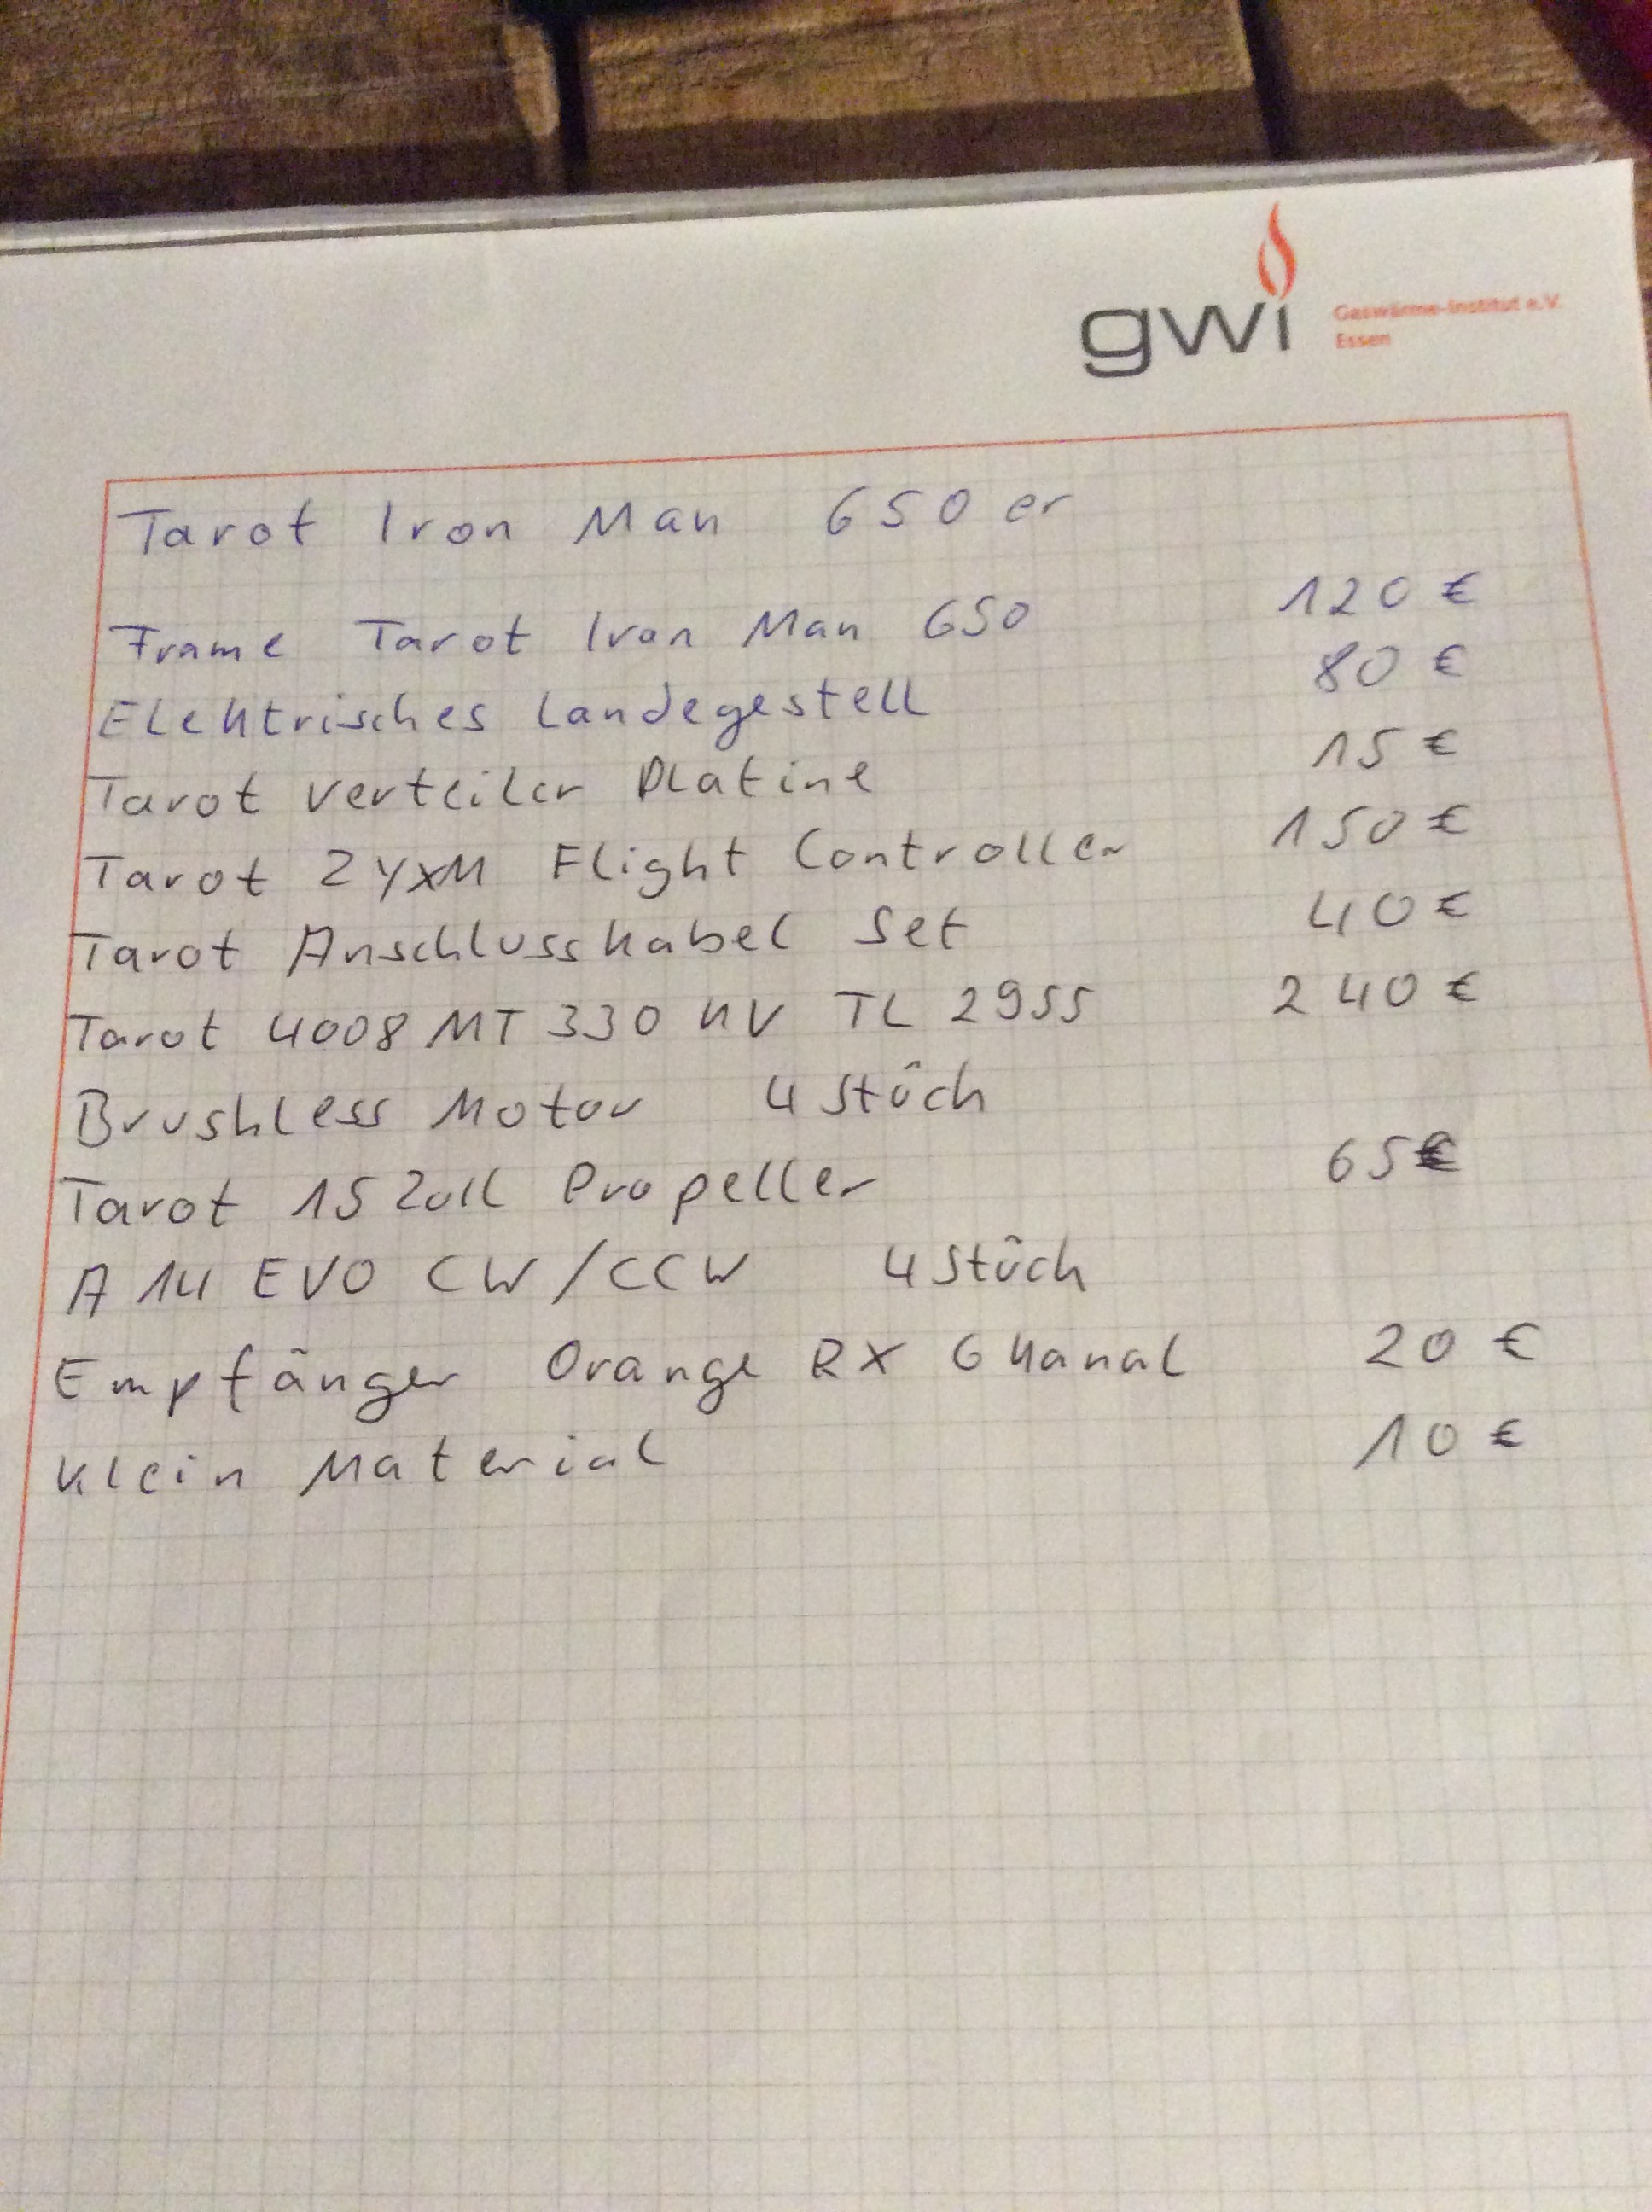 gwi
Gaswärme-Institut e.V.
Essen
Tarot Iron Man 650 er
Frame Tarot Iron Man 650 120 €
Elektrisches Landegestell 80 €
Tarot Verteiler Platine 15 €
Tarot ZYXM Flight Controller 150 €
Tarot Anschlusskabel Set 40 €
Tarot 4008 MT 330 KV TL 2955 240 €
Brushless Motor 4 Stück
Tarot 15 Zoll Propeller 65 €
A 14 EVO CW/CCW 4 Stück
Empfänger Orange RX 6 Kanal 20 €
Klein Material 10 €